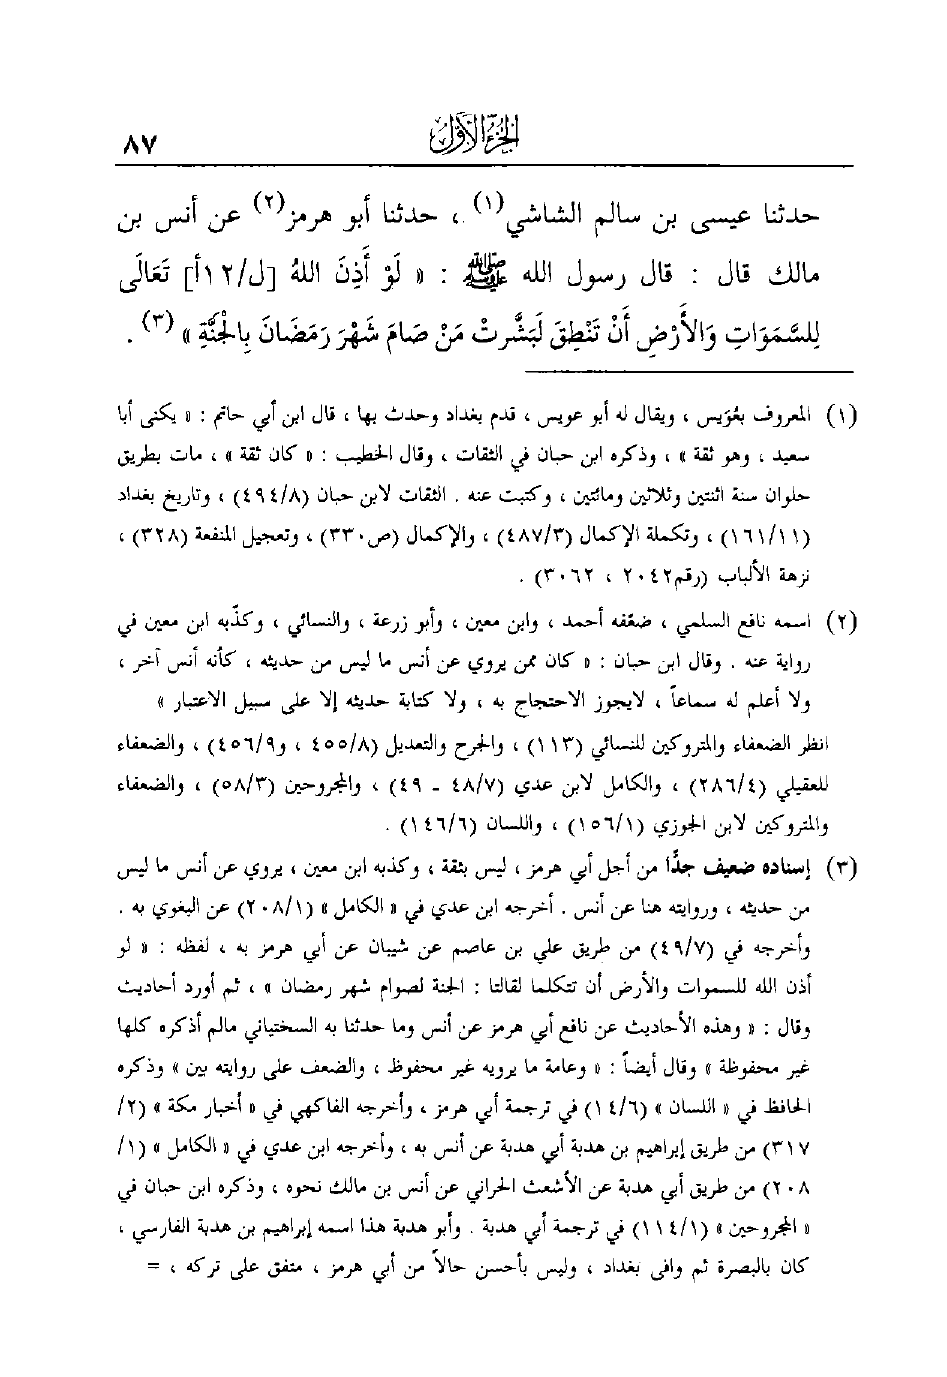 الجزء الأول ٨٧
حدثنا عيسى بن سالم الشاشي(١) ، حدثنا أبو هرمز(٢) عن أنس بن
مالك قال : قال رسول الله ﷺ : « لَوْ أَذِنَ اللهُ [ل/١٢أ] تَعَالَى
لِلسَّمَوَاتِ وَالأَرْضِ أَنْ تَنْطِقَ لَبَشَّرتْ مَنْ صَامَ شَهْرَ رَمَضَانَ بِالْجَنَّةِ » (٣) .
(١) المعروف بعُوَيس ، ويقال له أبو عويس ، قدم بغداد وحدث بها ، قال ابن أبي حاتم : « يكنى أبا
سعيد ، وهو ثقة » ، وذكره ابن حبان في الثقات ، وقال الخطيب : « كان ثقة » ، مات بطريق
حلوان سنة اثنتين وثلاثين ومائتين ، وكتبت عنه . الثقات لابن حبان (٤٩٤/٨) ، وتاريخ بغداد
(١٦١/١١) ، وتكملة الإكمال (٤٨٧/٣) ، والإكمال (ص٣٣٠) ، وتعجيل المنفعة (٣٢٨) ،
نزهة الألباب (رقم٢٠٤٢ ، ٣٠٦٢) .
(٢) اسمه نافع السلمي ، ضعّفه أحمد ، وابن معين ، وأبو زرعة ، والنسائي ، وكذّبه ابن معين في
رواية عنه . وقال ابن حبان : « كان ممن يروي عن أنس ما ليس من حديثه ، كأنه أنس آخر ،
ولا أعلم له سماعاً ، لايجوز الاحتجاج به ، ولا كتابة حديثه إلا على سبيل الاعتبار »
انظر الضعفاء والمتروكين للنسائي (١١٣) ، والجرح والتعديل (٤٥٥/٨ ، و٤٥٦/٩) ، والضعفاء
للعقيلي (٢٨٦/٤) ، والكامل لابن عدي (٤٨/٧ ـ ٤٩) ، والمجروحين (٥٨/٣) ، والضعفاء
والمتروكين لابن الجوزي (١٥٦/١) ، واللسان (١٤٦/٦) .
(٣) إسناده ضعيف جدًّا من أجل أبي هرمز ، ليس بثقة ، وكذبه ابن معين ، يروي عن أنس ما ليس
من حديثه ، وروايته هنا عن أنس . أخرجه ابن عدي في « الكامل » (٢٠٨/١) عن البغوي به .
وأخرجه في (٤٩/٧) من طريق علي بن عاصم عن شيبان عن أبي هرمز به ، لفظه : « لو
أذن الله للسموات والأرض أن تتكلما لقالتا : الجنة لصوام شهر رمضان » ، ثم أورد أحاديث
وقال : « وهذه الأحاديث عن نافع أبي هرمز عن أنس وما حدثنا به السختياني مالم أذكره كلها
غير محفوظة » وقال أيضاً : « وعامة ما يرويه غير محفوظ ، والضعف على روايته بين » وذكره
الحافظ في « اللسان » (١٤/٦) في ترجمة أبي هرمز ، وأخرجه الفاكهي في « أخبار مكة » (٢/
٣١٧) من طريق إبراهيم بن هدبة أبي هدبة عن أنس به ، وأخرجه ابن عدي في « الكامل » (١/
٢٠٨) من طريق أبي هدبة عن الأشعث الحراني عن أنس بن مالك نحوه ، وذكره ابن حبان في
« المجروحين » (١١٤/١) في ترجمة أبي هدبة . وأبو هدبة هذا اسمه إبراهيم بن هدبة الفارسي ،
كان بالبصرة ثم وافى بغداد ، وليس بأحسن حالاً من أبي هرمز ، متفق على تركه ، =